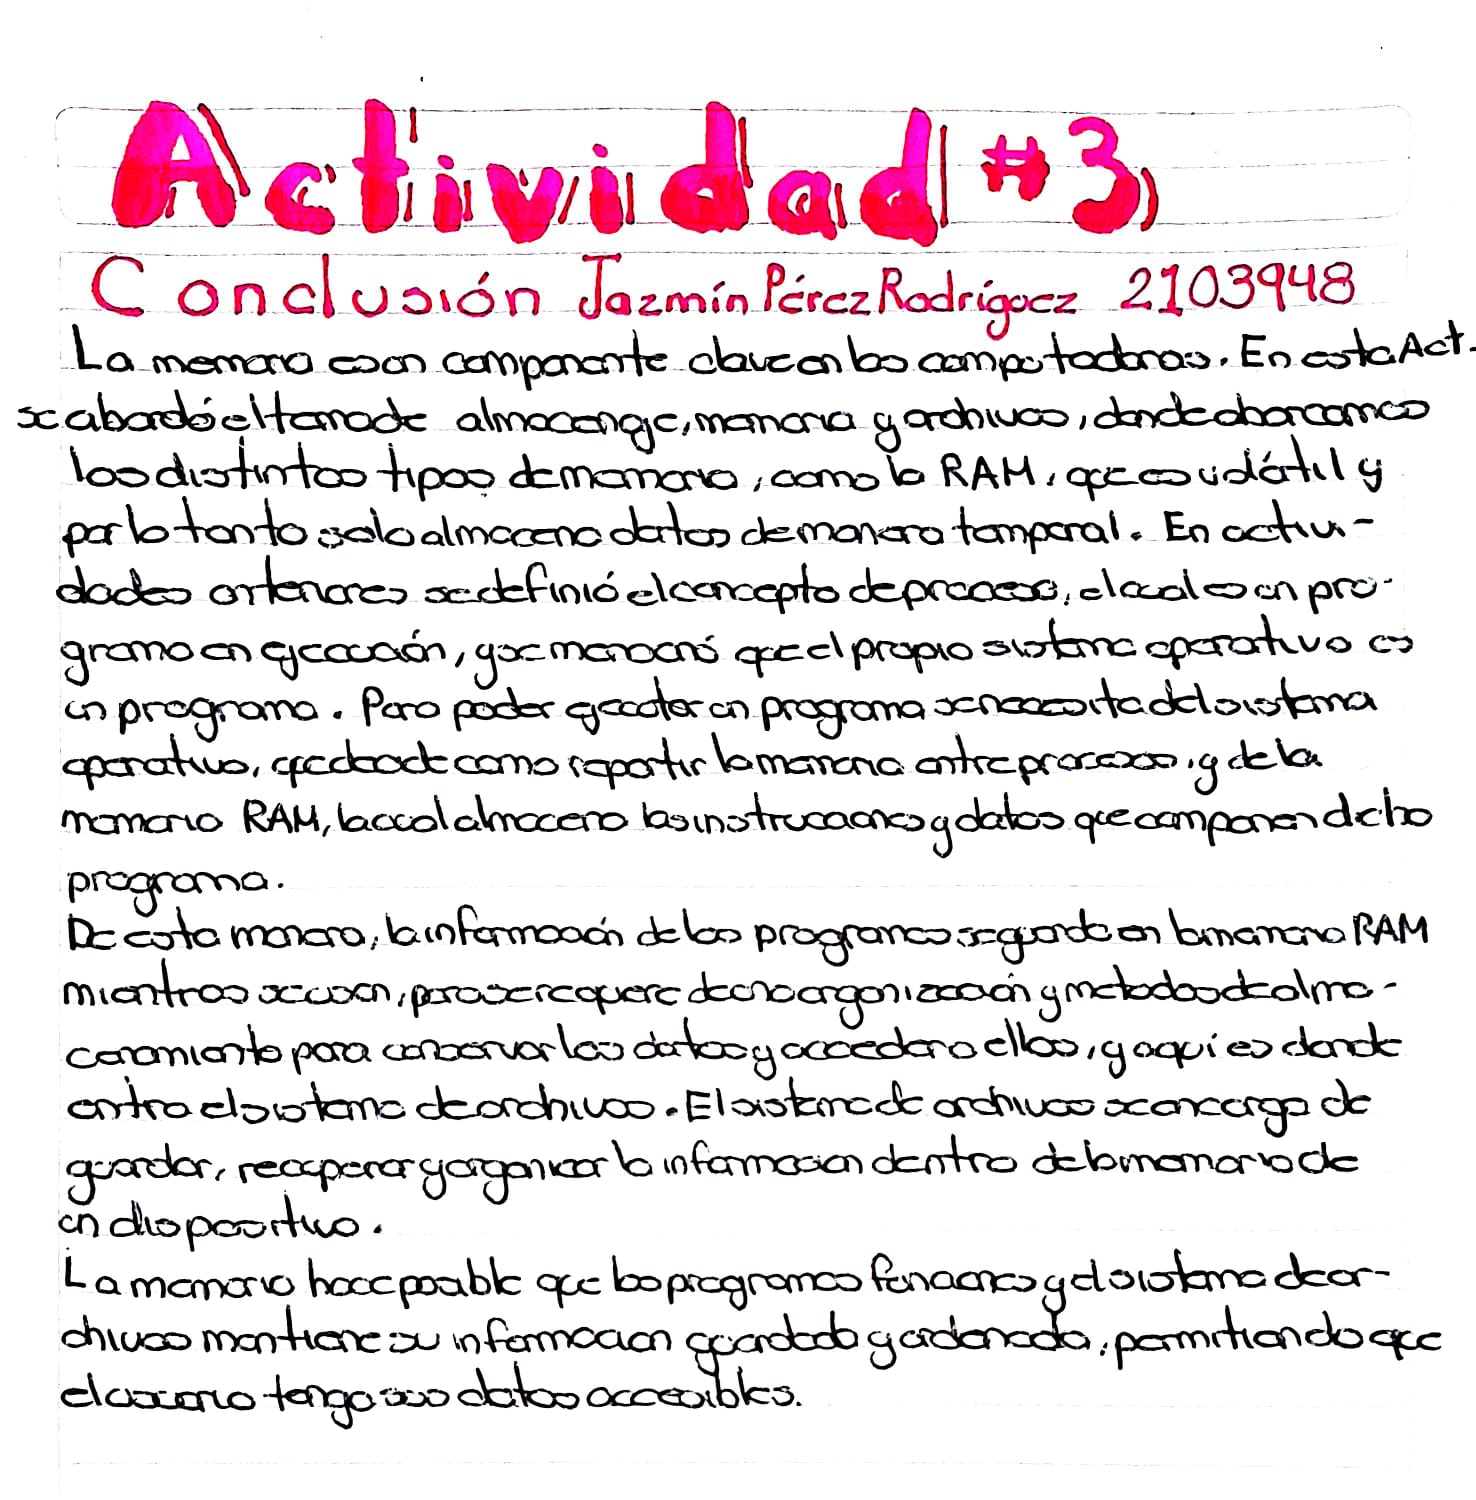 Actividad #3
Conclusión Jazmín Pérez Rodríguez 2103948
La memoria es un componente clave en las computadoras. En esta Act.
se abordó el tema de almacenaje, memoria y archivos, donde abarcamos
los distintos tipos de memoria, como la RAM, que es volátil y
por lo tanto solo almacena datos de manera temporal. En activi-
dades anteriores se definió el concepto de proceso, el cual es un pro-
grama en ejecución, y se mencionó que el propio sistema operativo es
un programa. Para poder ejecutar un programa se necesita del sistema
operativo, que decide como repartir la memoria entre procesos, y de la
memoria RAM, la cual almacena las instrucciones y datos que componen dicho
programa.
De esta manera, la información de los programas se guarda en la memoria RAM
mientras se usan, pero se requiere de una organización y metodos de alma-
cenamiento para conservar los datos y acceder a ellos, y aquí es donde
entra el sistema de archivos. El sistema de archivos se encarga de
guardar, recuperar y organizar la informacion dentro de la memoria de
un dispositivo.
La memoria hace posible que los programas funcionen y el sistema de ar-
chivos mantiene su informacion guardada y ordenada, permitiendo que
el usuario tenga sus datos accesibles.